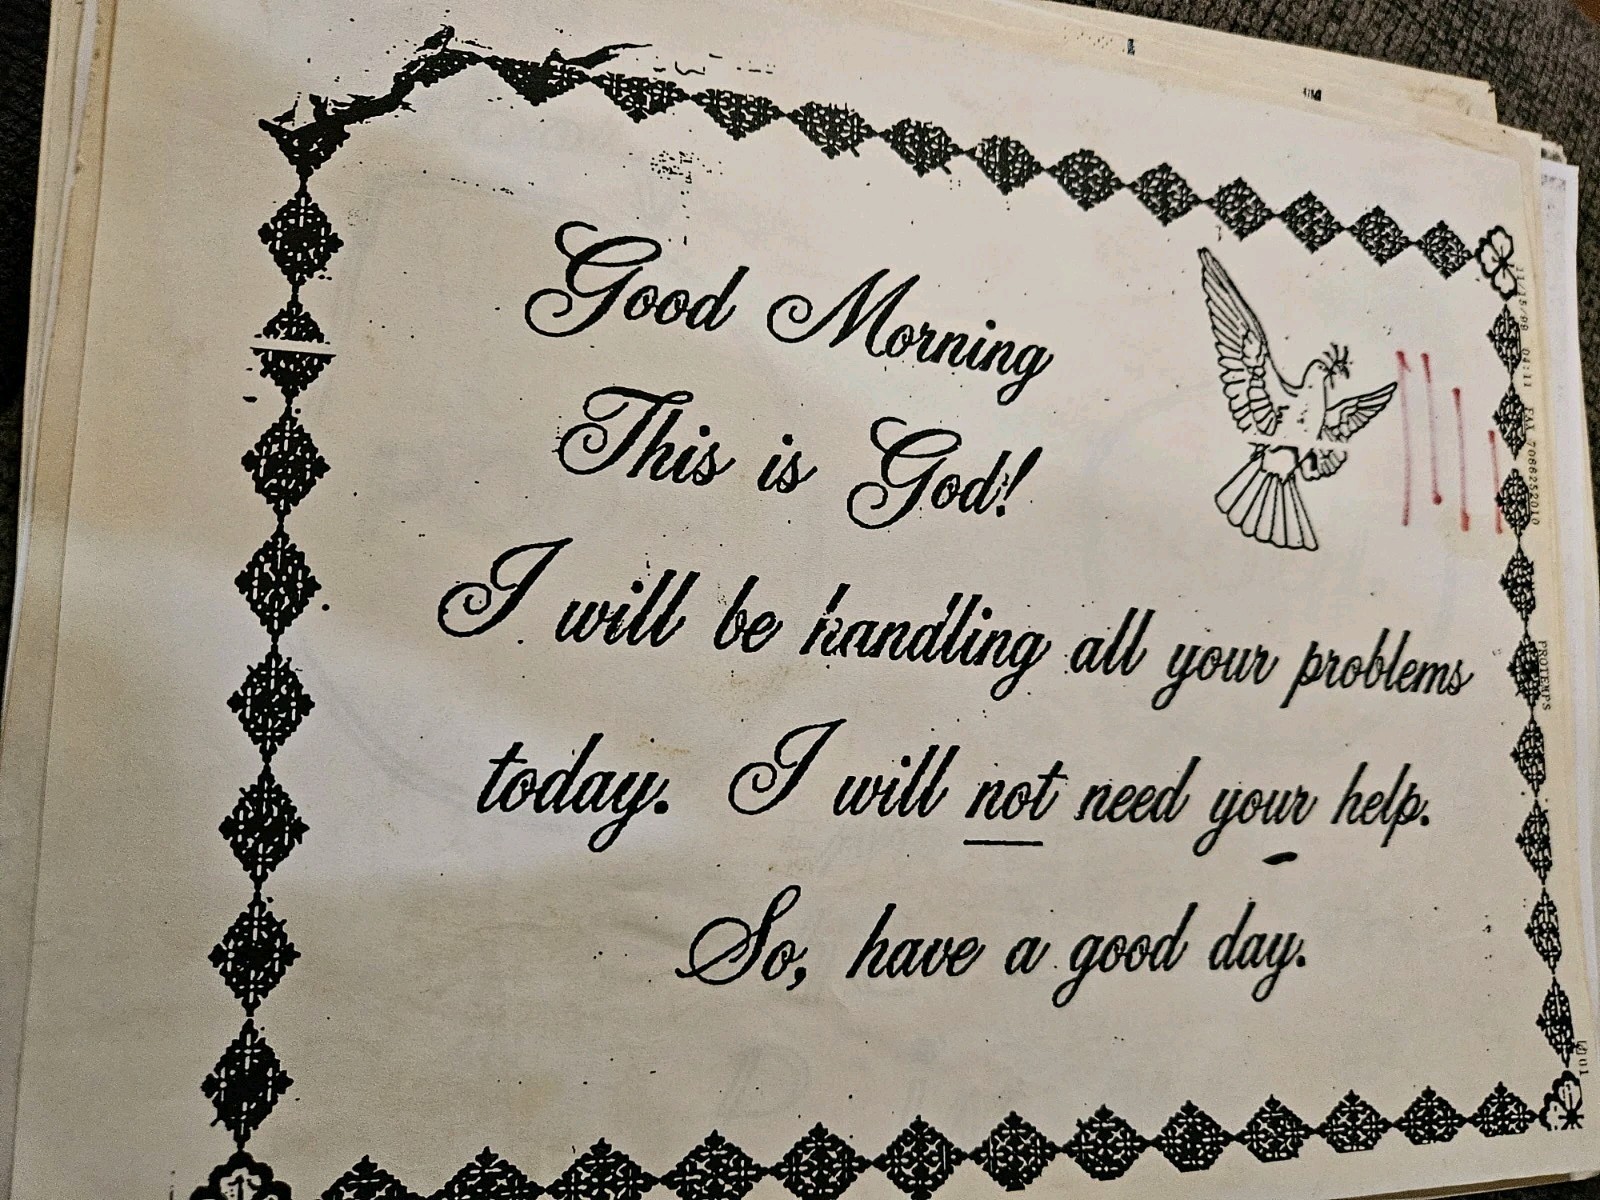 Good Morning
This is God!
I will be handling all your problems
today. I will not need your help.
So, have a good day.
11/15/99 04:11 FAX 7066252010
PROTEMPS
001